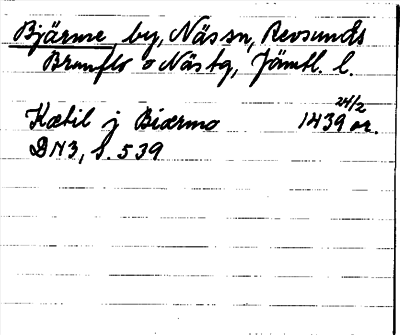 Bjärme by, Näs sn, Revsunds
Brunflo o Näs tg, Jämtl. l.
24/2
Kætil j Biærmo 1439 or.
DN3, s. 539